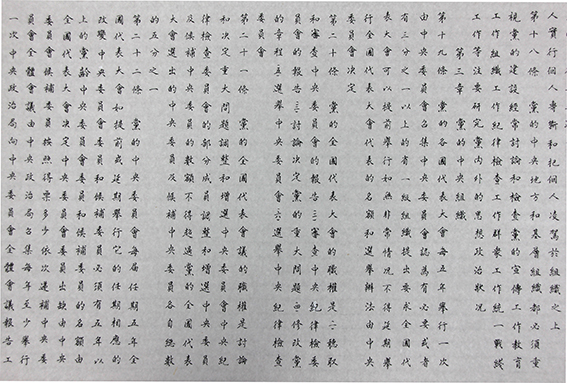 人實行個人專斷和把個人凌駕於組織之上
第十八條 黨的中央地方和基層組織都必須重
視黨的建設經常討論和檢查黨的宣傳工作教育
工作組織工作紀律檢查工作群眾工作統一戰線
工作等注意研究黨內外的思想政治狀況
第三章 黨的中央組織
第十九條 黨的全國代表大會每五年舉行一次
由中央委員會召集中央委員會認為有必要或者
有三分之一以上的省一級組織提出要求全國代
表大會可以提前舉行如無非常情況不得延期舉
行全國代表大會代表的名額和選舉辦法由中央
委員會決定
第二十條 黨的全國代表大會的職權是一聽取
和審查中央委員會的報告二審查中央紀律檢委
員會的報告三討論決定黨的重大問題四修改黨
的章程五選舉中央委員會六選舉中央紀律檢查
委員會
第二十一條 黨的全國代表會議的職權是討論
和決定重大問題調整和增選中央委員會中央紀
律檢查委員會的部分成員調整和增選中央委員
及候補中央委員的數額不得超過黨的全國代表
大會選出的中央委員及候補中央委員各自總數
的五分之一
第二十二條 黨的中央委員會每屆任期五年全
國代表大會如提前或延期舉行它的任期相應的
改變中央委員會委員和候補委員必須有五年以
上的黨齡中央委員會委員和候補委員的名額由
全國代表大會決定中央委員會委員出缺由中央
委員會候補委員按照得票多少依次遞補中央委
員會全體會議由中央政治局召集每年至少舉行
一次中央政治局向中央委員會全體會議報告工